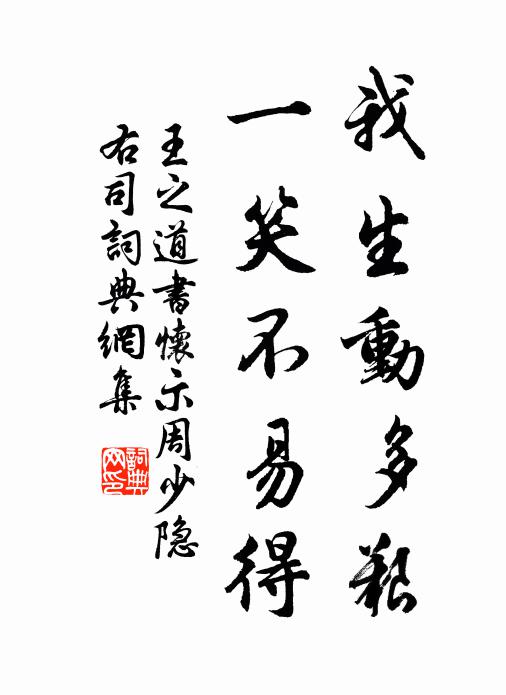 我生動多艱
一笑不易得
王之道書懷示周少隐
右司詞典網集
詞典网印